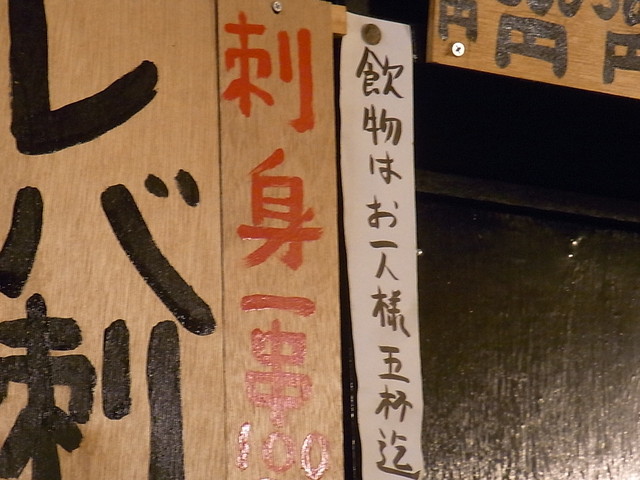 飲物はお一人様五杯迄
刺身一串100
レバ刺
円
円